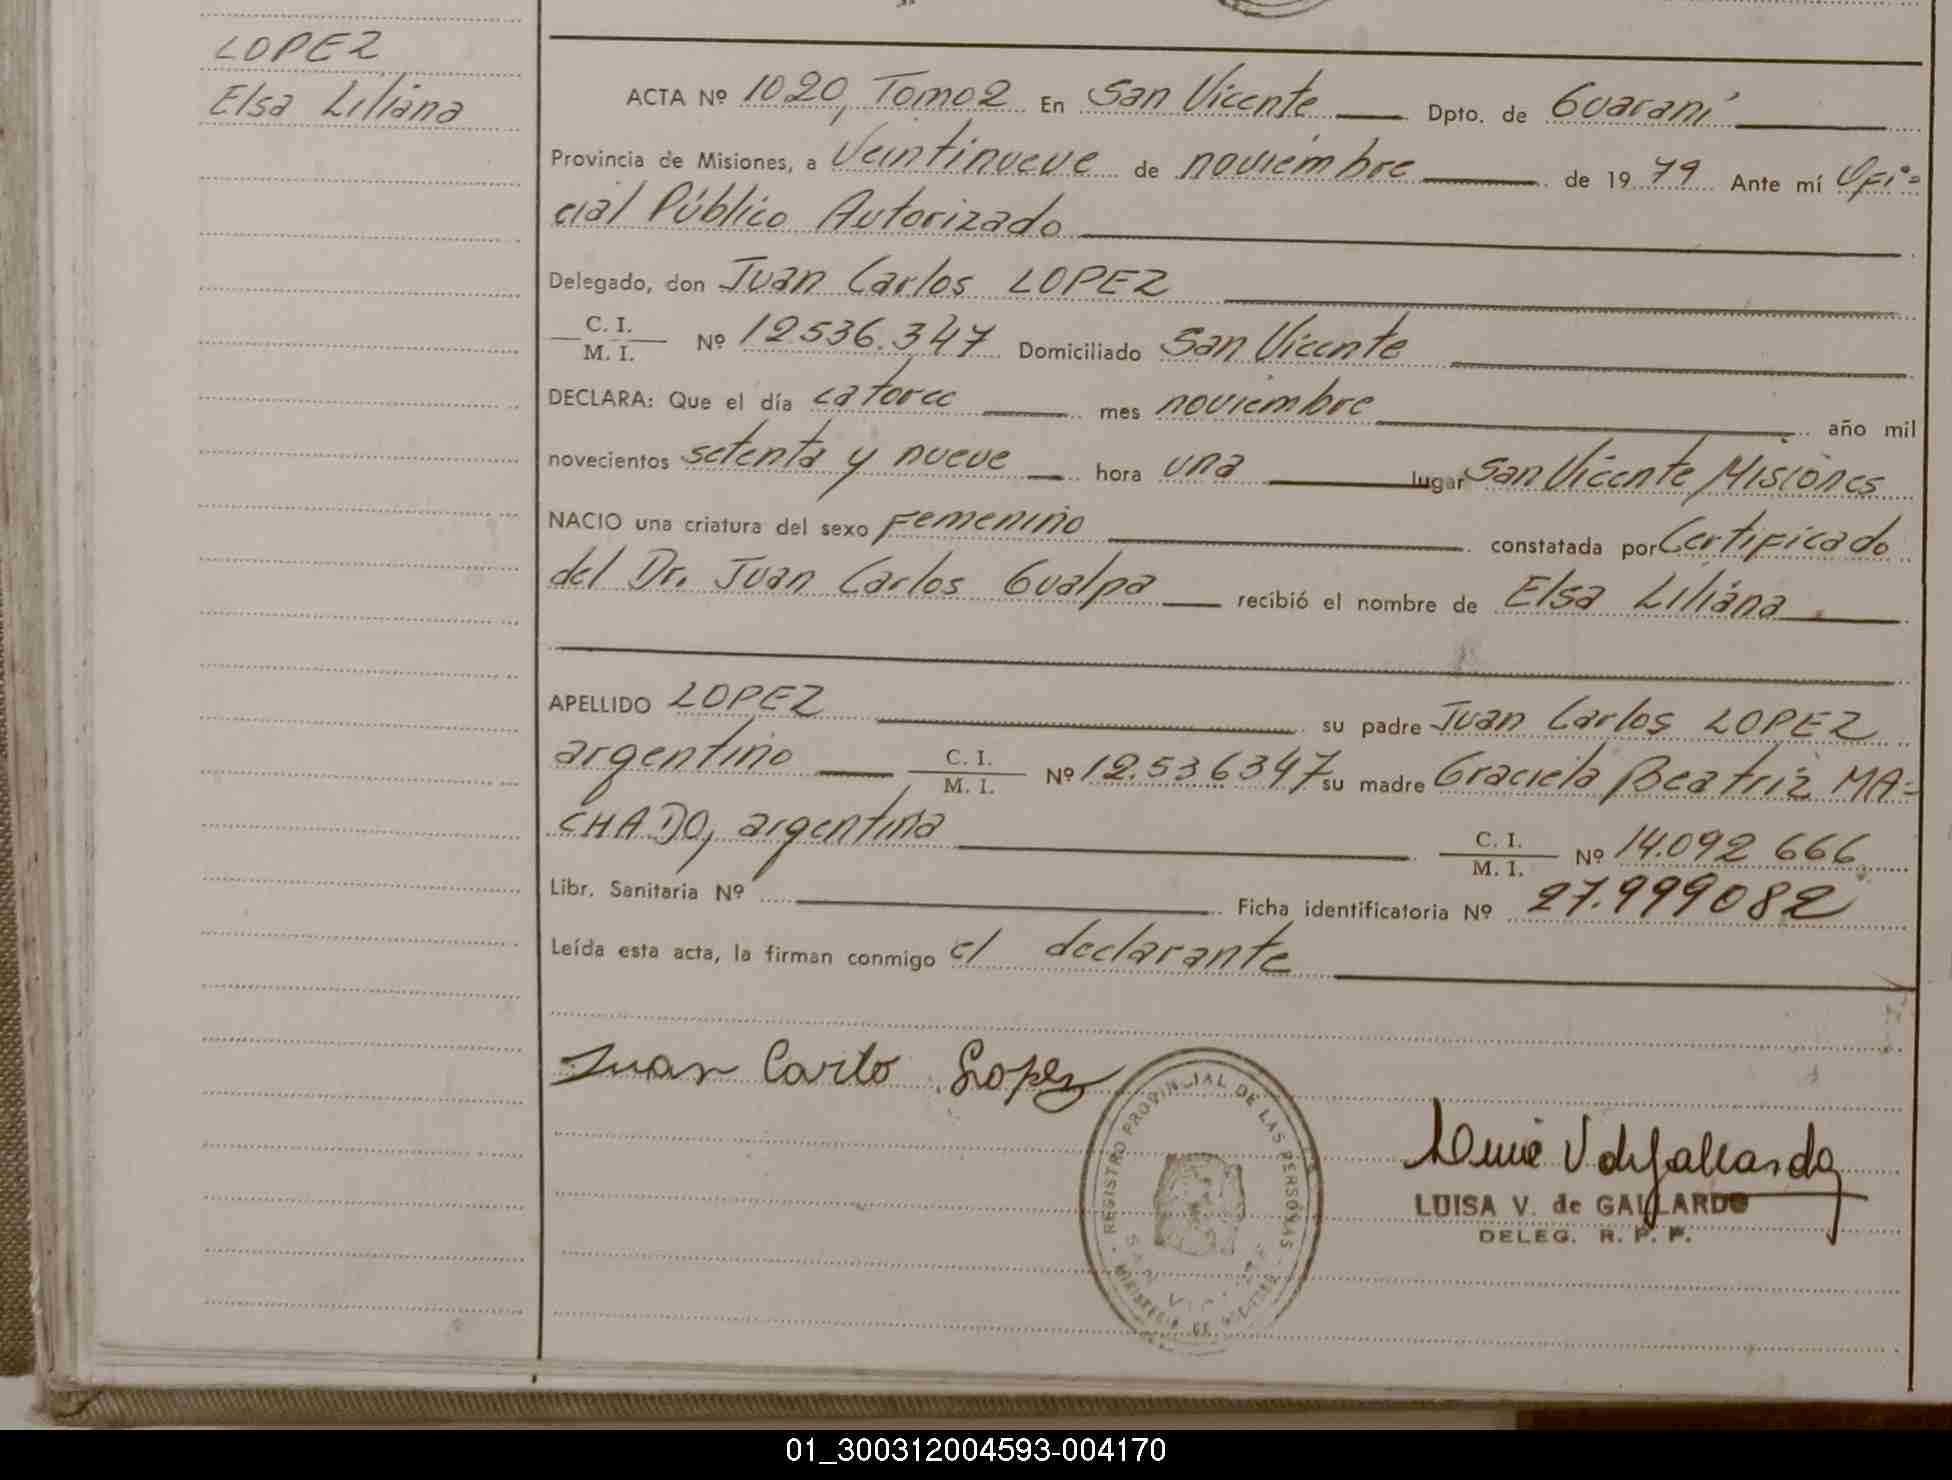 LOPEZ
Elsa Liliana
ACTA Nº 1020, Tomo 2 En San Vicente Dpto. de Guaraní
Provincia de Misiones, a Veintinueve de noviembre de 1979 Ante mí Ofi=
cial Público Autorizado
Delegado, don Juan Carlos LOPEZ
C. I.
M. I. Nº 12.536.347 Domiciliado San Vicente
DECLARA: Que el día catorce mes noviembre año mil
novecientos setenta y nueve hora una lugar San Vicente Misiones
NACIO una criatura del sexo Femenino constatada por Certificado
del Dr. Juan Carlos Gualpa recibió el nombre de Elsa Liliana
APELLIDO LOPEZ su padre Juan Carlos LOPEZ
argentino C. I. M. I. Nº 12.536347 su madre Graciela Beatriz MA=
CHADO, argentina C. I. M. I. Nº 14.092 666
Libr. Sanitaria Nº Ficha identificatoria Nº 27.999082
Leída esta acta, la firman conmigo el declarante
Juan Carlo Lopez
REGISTRO PROVINCIAL DE LAS PERSONAS
LUISA V. de GALLARDO
DELEG. R. P. P.
01_300312004593-004170